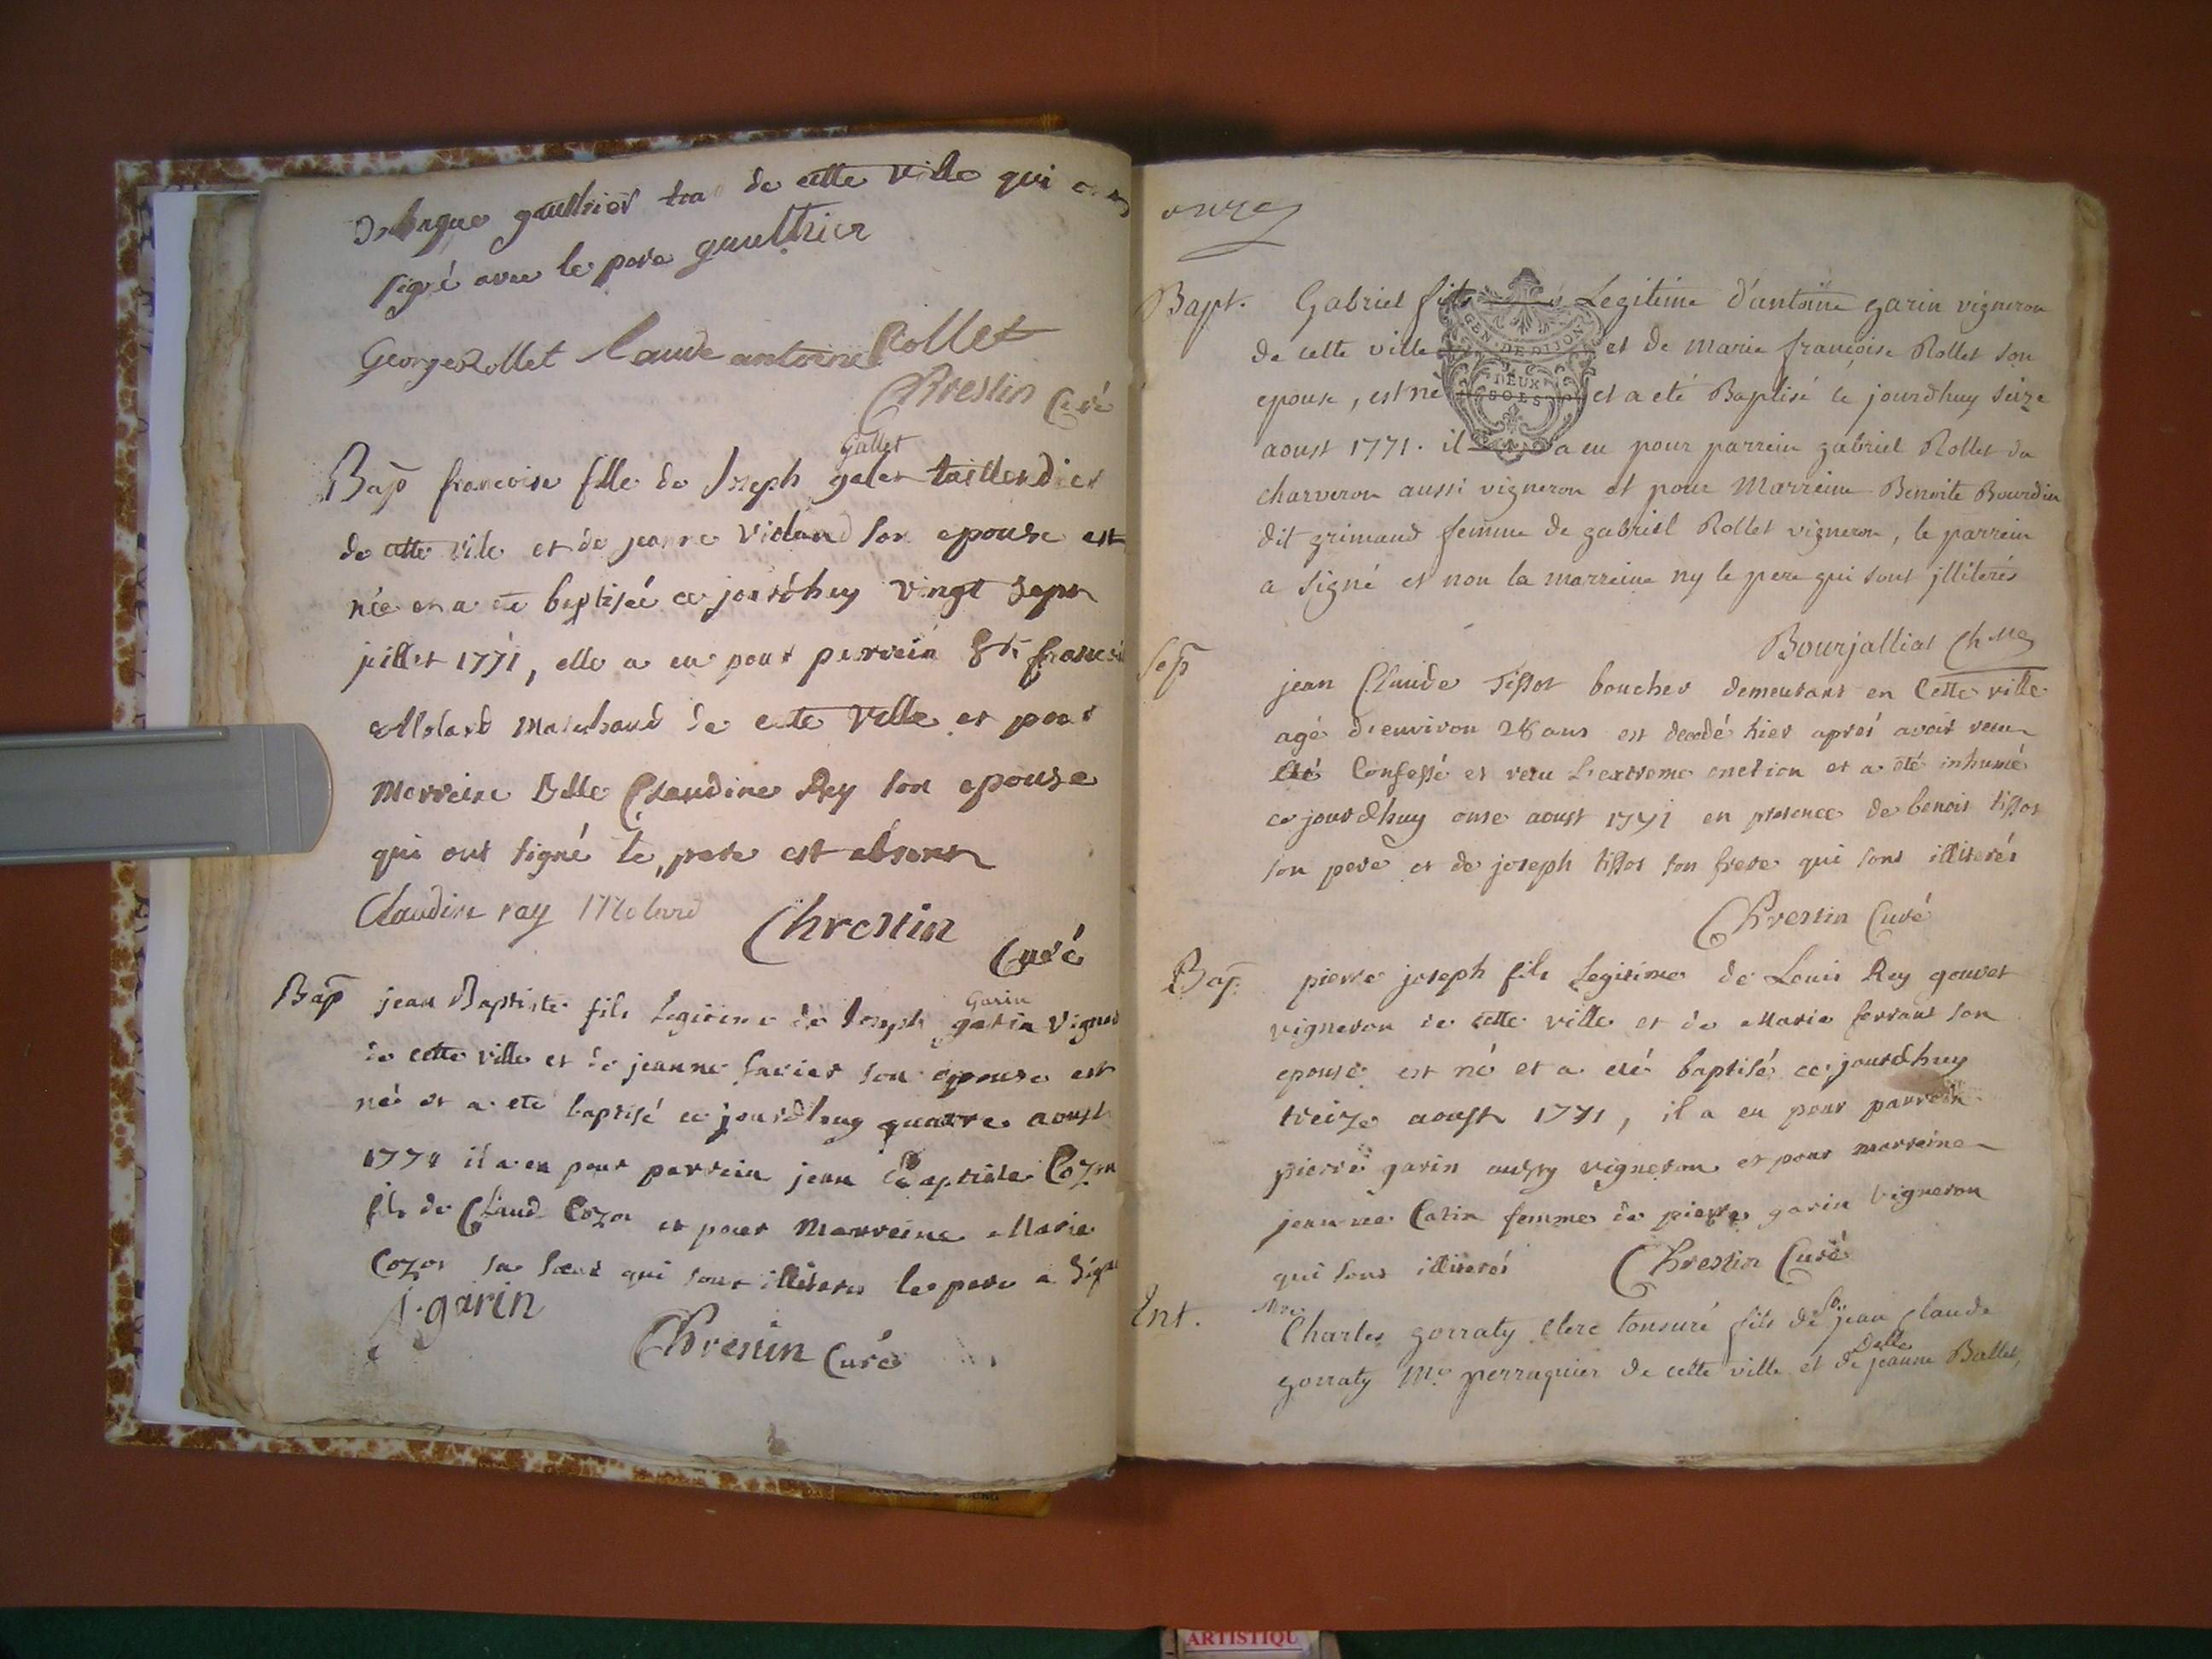 gaulthier de cette ville qui
signé avec le pere gaulthier
George Rollet Claude antoine Collet
Chrestin Curé
gallet
Bap francoise fille de Joseph galet taillendier
de cette ville et de jeanne Violand son epouse est
née et a été baptisée ce jourdhuy vingt sept
juillet 1771, elle a eu pour parrein Sr. francois
Molard Marchand de cette Ville et pour
Marreine Delle Claudine Rey son epouse
qui ont signé le pere est absent
Claudine ray Molard Chrestin
Curé
Garin
Bap jean Baptiste fils legitime de Joseph garin Vigner
de cette ville et de jeanne savier son epouse est
né et a été baptisé ce jourdhuy quatre aoust
1771 il a eu pour parrein jean Baptiste Cozon
fils de Claud Cozon et pour Marreine Marie
Cozon sa soeur qui sont illiteres le pere a signé
j. garin
Chrestin Curé
onze
GEN. DE DIJON
DEUX
SOLS
Bapt. Gabriel fils Legitime d'antoine garin vigneron
de cette ville et de marie françoise Rollet son
epouse, est né et a eté Baptisé ce jourdhuy seize
aoust 1771. il a eu pour parrein gabriel Rollet du
charveron aussi vigneron et pour Marreine Benoite Bourdin
dit grimaud femme de gabriel Rollet vigneron, le parrein
a signé et non la marreine ny le pere qui sont jlliterés
Bourjalliat
Sep
jean Claude Tissot boucher demeurant en Cette ville
agé d'environ 28 ans est decedé hier aprés avoir
été Confessé et recu L'extreme onction et a été inhumé
ce jourdhuy onse aoust 1771 en presence de benoit tissot
son pere et de joseph tissot son frere qui sont illiterés
Chrestin Curé
Bap. pierre joseph fils Legitime de Louis Rey gouvet
vigneron de cette ville et de Marie ferrant son
epouse est né et a eté baptisé ce jourdhuy
treize aoust 1771, il a eu pour parrein
pierre garin aussy vigneron et pour marreine
jeanne Catin femme de pierre garin Vigneron
qui sont illiterés Chrestin Curé
Ent. Mre. Charles gorraty Clerc tonsuré fils de Sr. jean Claude
gorraty Me. perruquier de cette ville et de Delle jeanne Ballet,
ARTISTIQU